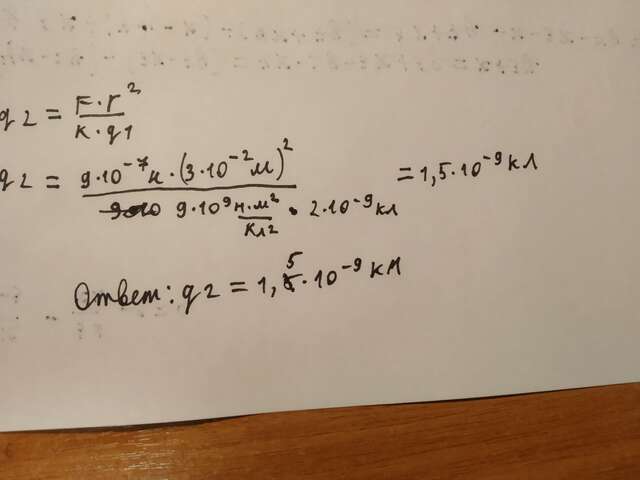 q2 = F·r²/к·q1
q2 = 9·10⁻⁷н·(3·10⁻²м)²/9·10⁹н·м²/Кл²·2·10⁻⁹кл = 1,5·10⁻⁹кл
Ответ: q2 = 1,5·10⁻⁹кл